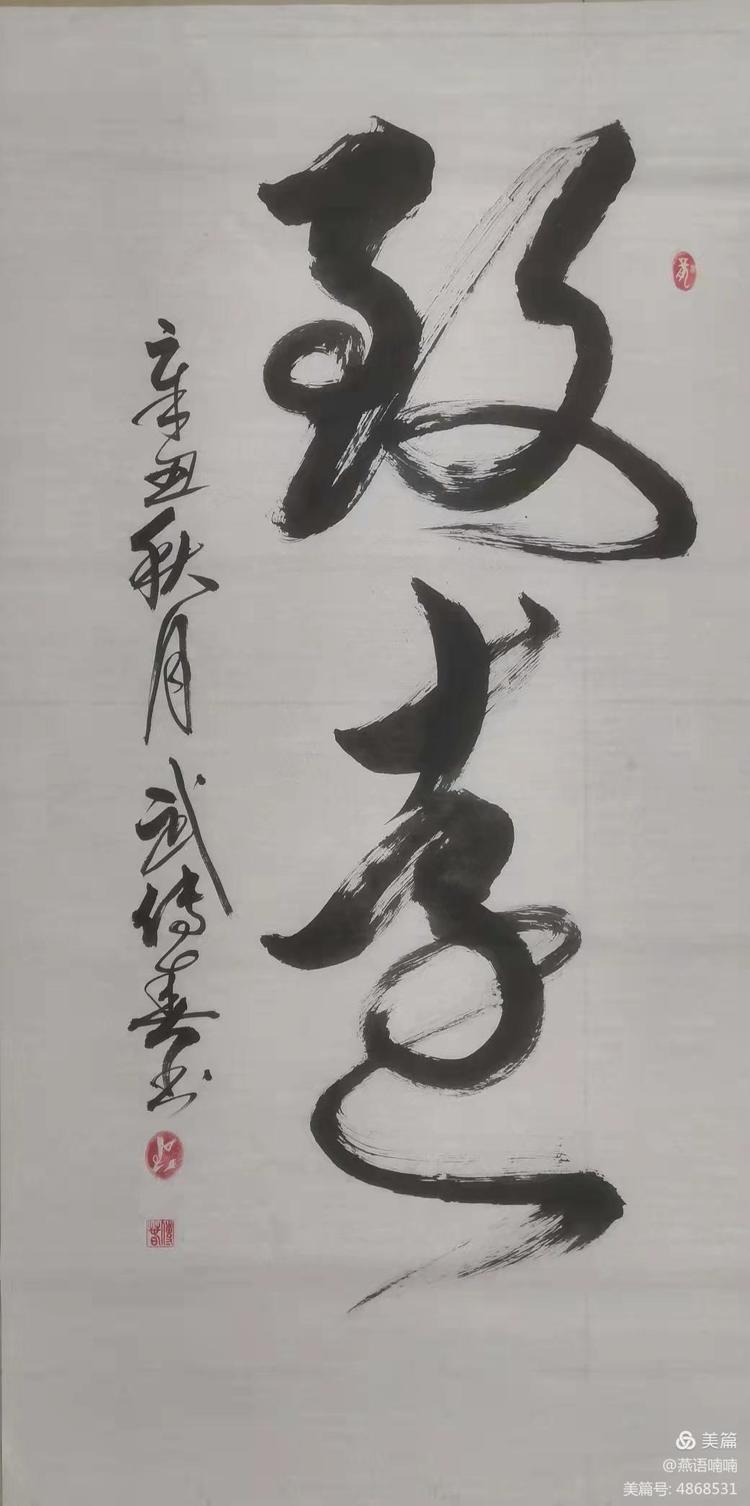 致远
辛丑秋月武传春书
美篇
@燕语喃喃
美篇号: 4868531